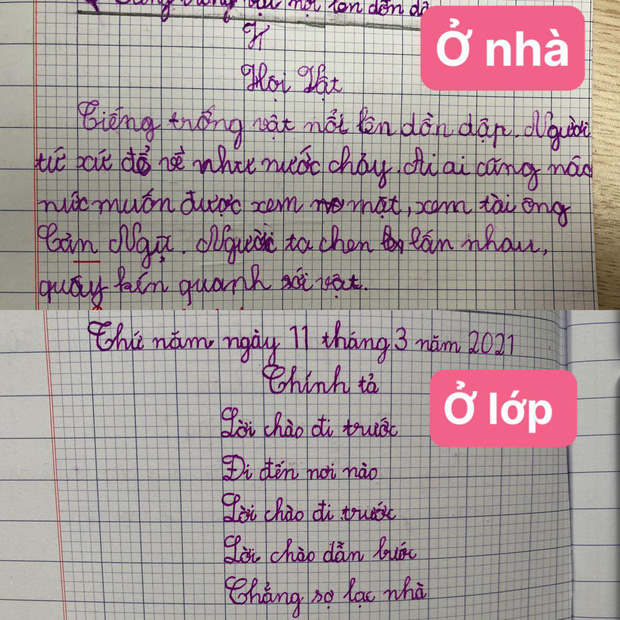 Tiếng trống vật nổi lên dồn dập
Ở nhà
H
Hội Vật
Tiếng trống vật nổi lên dồn dập. Người
tứ xứ đổ về như nước chảy. Ai ai cũng náo
nức muốn được xem mặt, xem tài ông
Cản Ngũ. Người ta chen lấn nhau,
quây kín quanh sới vật.
Thứ năm ngày 11 tháng 3 năm 2021
Chính tả
Ở lớp
Lời chào đi trước
Đi đến nơi nào
Lời chào đi trước
Lời chào dẫn bước
Chẳng sợ lạc nhà